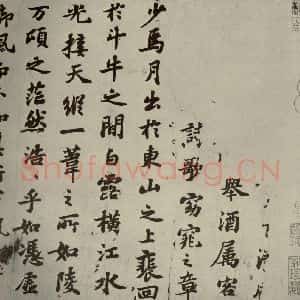 舉酒属客
詩歌窈窕之章
少焉月出於東山之上裵回
於斗牛之間白露横江水
光接天縱一葦之所如陵
万頃之茫然浩乎如憑虚
御風而不知其所
Shufawang.CN